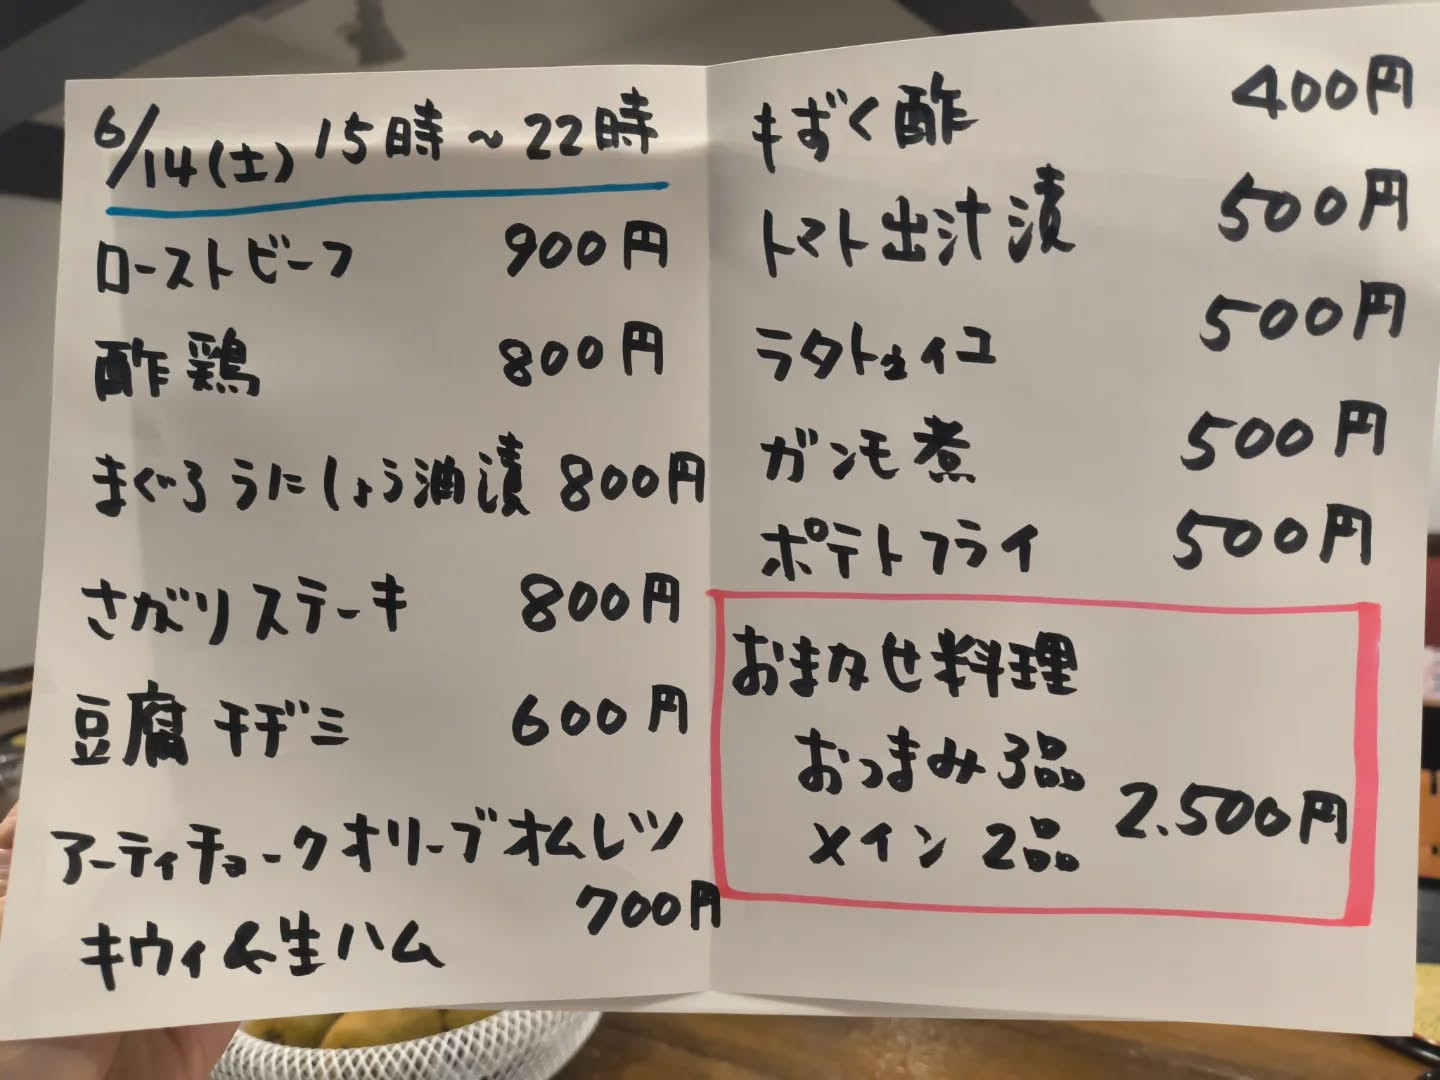 6/14(土) 15時~22時
ローストビーフ 900円
酢鶏 800円
まぐろうにしょう油漬 800円
さがりステーキ 800円
豆腐チヂミ 600円
アーティチョークオリーブオムレツ
700円
キウィ&生ハム
もずく酢 400円
トマト出汁漬 500円
ラタトゥイユ 500円
ガンモ煮 500円
ポテトフライ 500円
おまかせ料理
おつまみ3品
メイン2品 2.500円